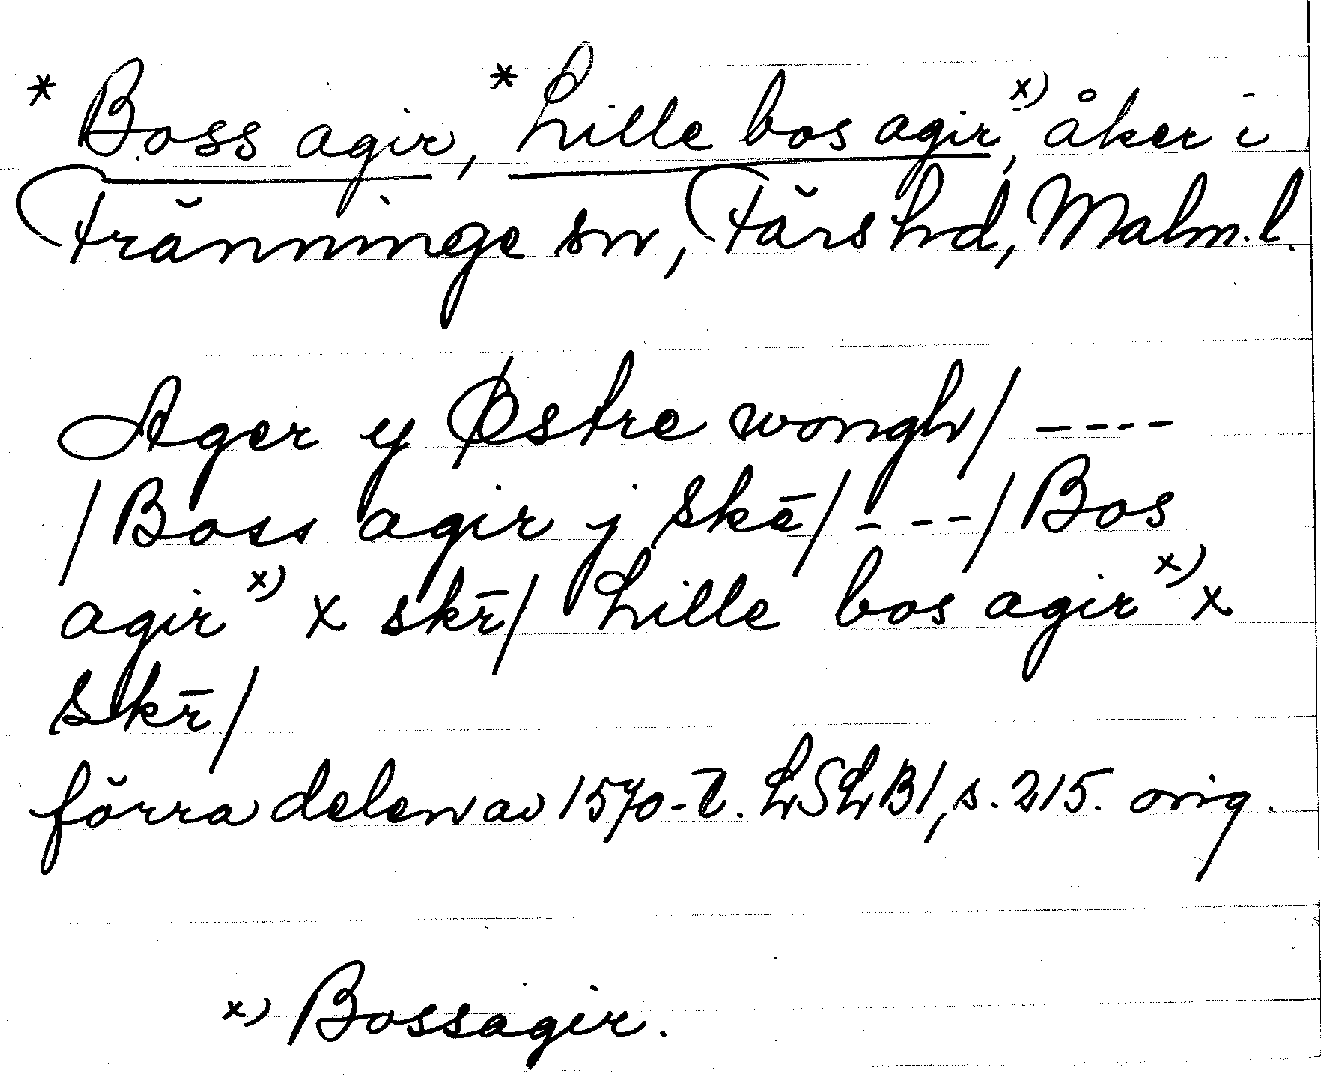 * Boss agir, * Lille bos agir x), åker i
Tränninge sn, Färs hd, Malm. l.
Ager y Østre wongh/ ----
/Boss agir j skē/ ---/Bos
agir x) x skr̄/ Lille bos agir x) x
skr̄/
förra delen av 1570-t. LSLB1, s. 215. orig.
x) Bossagir.